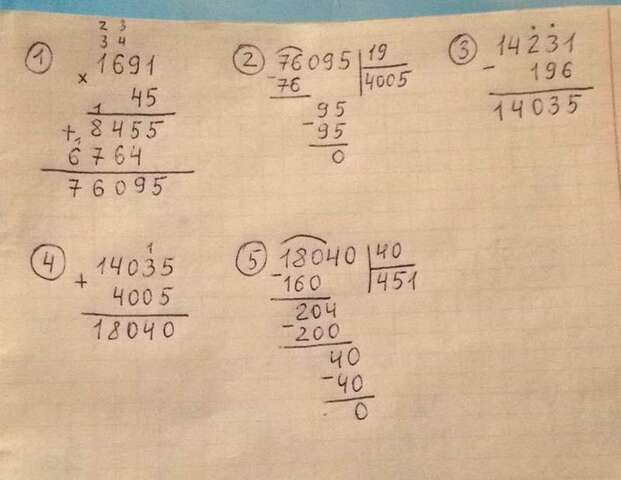 1
2 3
3 4
× 1691
45
1
+ 8455
1
6764
76095
2
76095 | 19
- 76 | 4005
95
- 95
0
3
14231
- 196
14035
4
1
+ 14035
4005
18040
5
18040 | 40
- 160 | 451
204
- 200
40
- 40
0